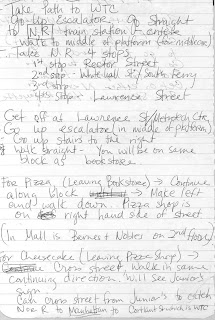 Take Path to WTC
Go Up Escalator. Go Straight
to N.R. train station → enter
walk to middle of platform
Take N.R. 4 stops
1st stop - Rector Street
2nd stop - Whitehall St/South Ferry
3rd stop -
4th stop - Lawrence Street
Get off at Lawrence St/Metrotech Ctr.
Go up escalator (in middle of platform)
Go up stairs to the right
walk straight - You will be on same
block as bookstore
For Pizza (Leaving Bookstore) → Continue
along block → Make left
and walk down. Pizza shop is
on right hand side of street
(In Mall is Barnes + Nobles on 2nd floor)
For Cheesecake (Leaving Pizza Shop) →
Cross street. Walk in same
continuing direction. Will see Junior's
sign.
Can cross street from Junior's to catch
N or R to Manhattan to Cortlandt Street is WTC